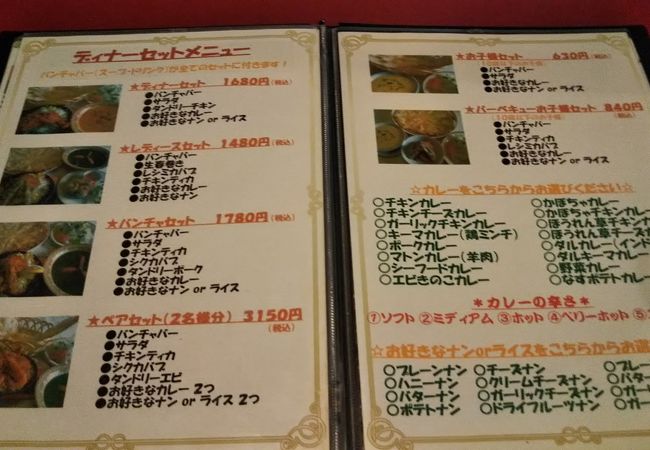 ディナーセットメニュー
パンチャパー(スープ・ドリンク)が全てのセットに付きます!
★ディナーセット 1680円(税込)
●パンチャパー
●サラダ
●タンドリーチキン
●お好きなカレー
●お好きなナン or ライス
★レディースセット 1480円(税込)
●パンチャパー
●生春巻き
●レシミカバブ
●チキンティカ
●お好きなカレー
●お好きなナン
★パンチャセット 1780円(税込)
●パンチャパー
●サラダ
●チキンティカ
●シクカバブ
●タンドリーポーク
●お好きなカレー
●お好きなナン or ライス
★ペアセット(2名様分) 3150円
(税込)
●パンチャパー
●サラダ
●チキンティカ
●シクカバブ
●タンドリーエビ
●お好きなカレー 2つ
●お好きなナン or ライス 2つ
★お子様セット 630円(税込)
(10歳以下のお子様)
●パンチャパー
●サラダ
●お好きなカレー
●お好きなナン or ライス
★バーベキューお子様セット 840円
(10歳以下のお子様) (税込)
●パンチャパー
●サラダ
●チキンティカ
●レシミカバブ
●お好きなカレー
●お好きなナン or ライス
☆カレーをこちらからお選びください☆
○チキンカレー
○チキンチーズカレー
○ガーリックチキンカレー
○キーマカレー(鶏ミンチ)
○ポークカレー
○マトンカレー(羊肉)
○シーフードカレー
○エビきのこカレー
○かぼちゃカレー
○かぼちゃチキンカレー
○ほうれん草チキン
○ほうれん草チーズ
○ダルカレー(インド
○ダルキーマカレー
○野菜カレー
○なすポテトカレー
*カレーの辛さ*
①ソフト ②ミディアム ③ホット ④ベリーホット ⑤
☆お好きなナンorライスをこちらからお選
○プレーンナン
○ハニーナン
○バターナン
○ポテトナン
○チーズナン
○クリームチーズナン
○ガーリックナン
○ドライフルーツナン
○プレー
○バター
○ガー
○ガー